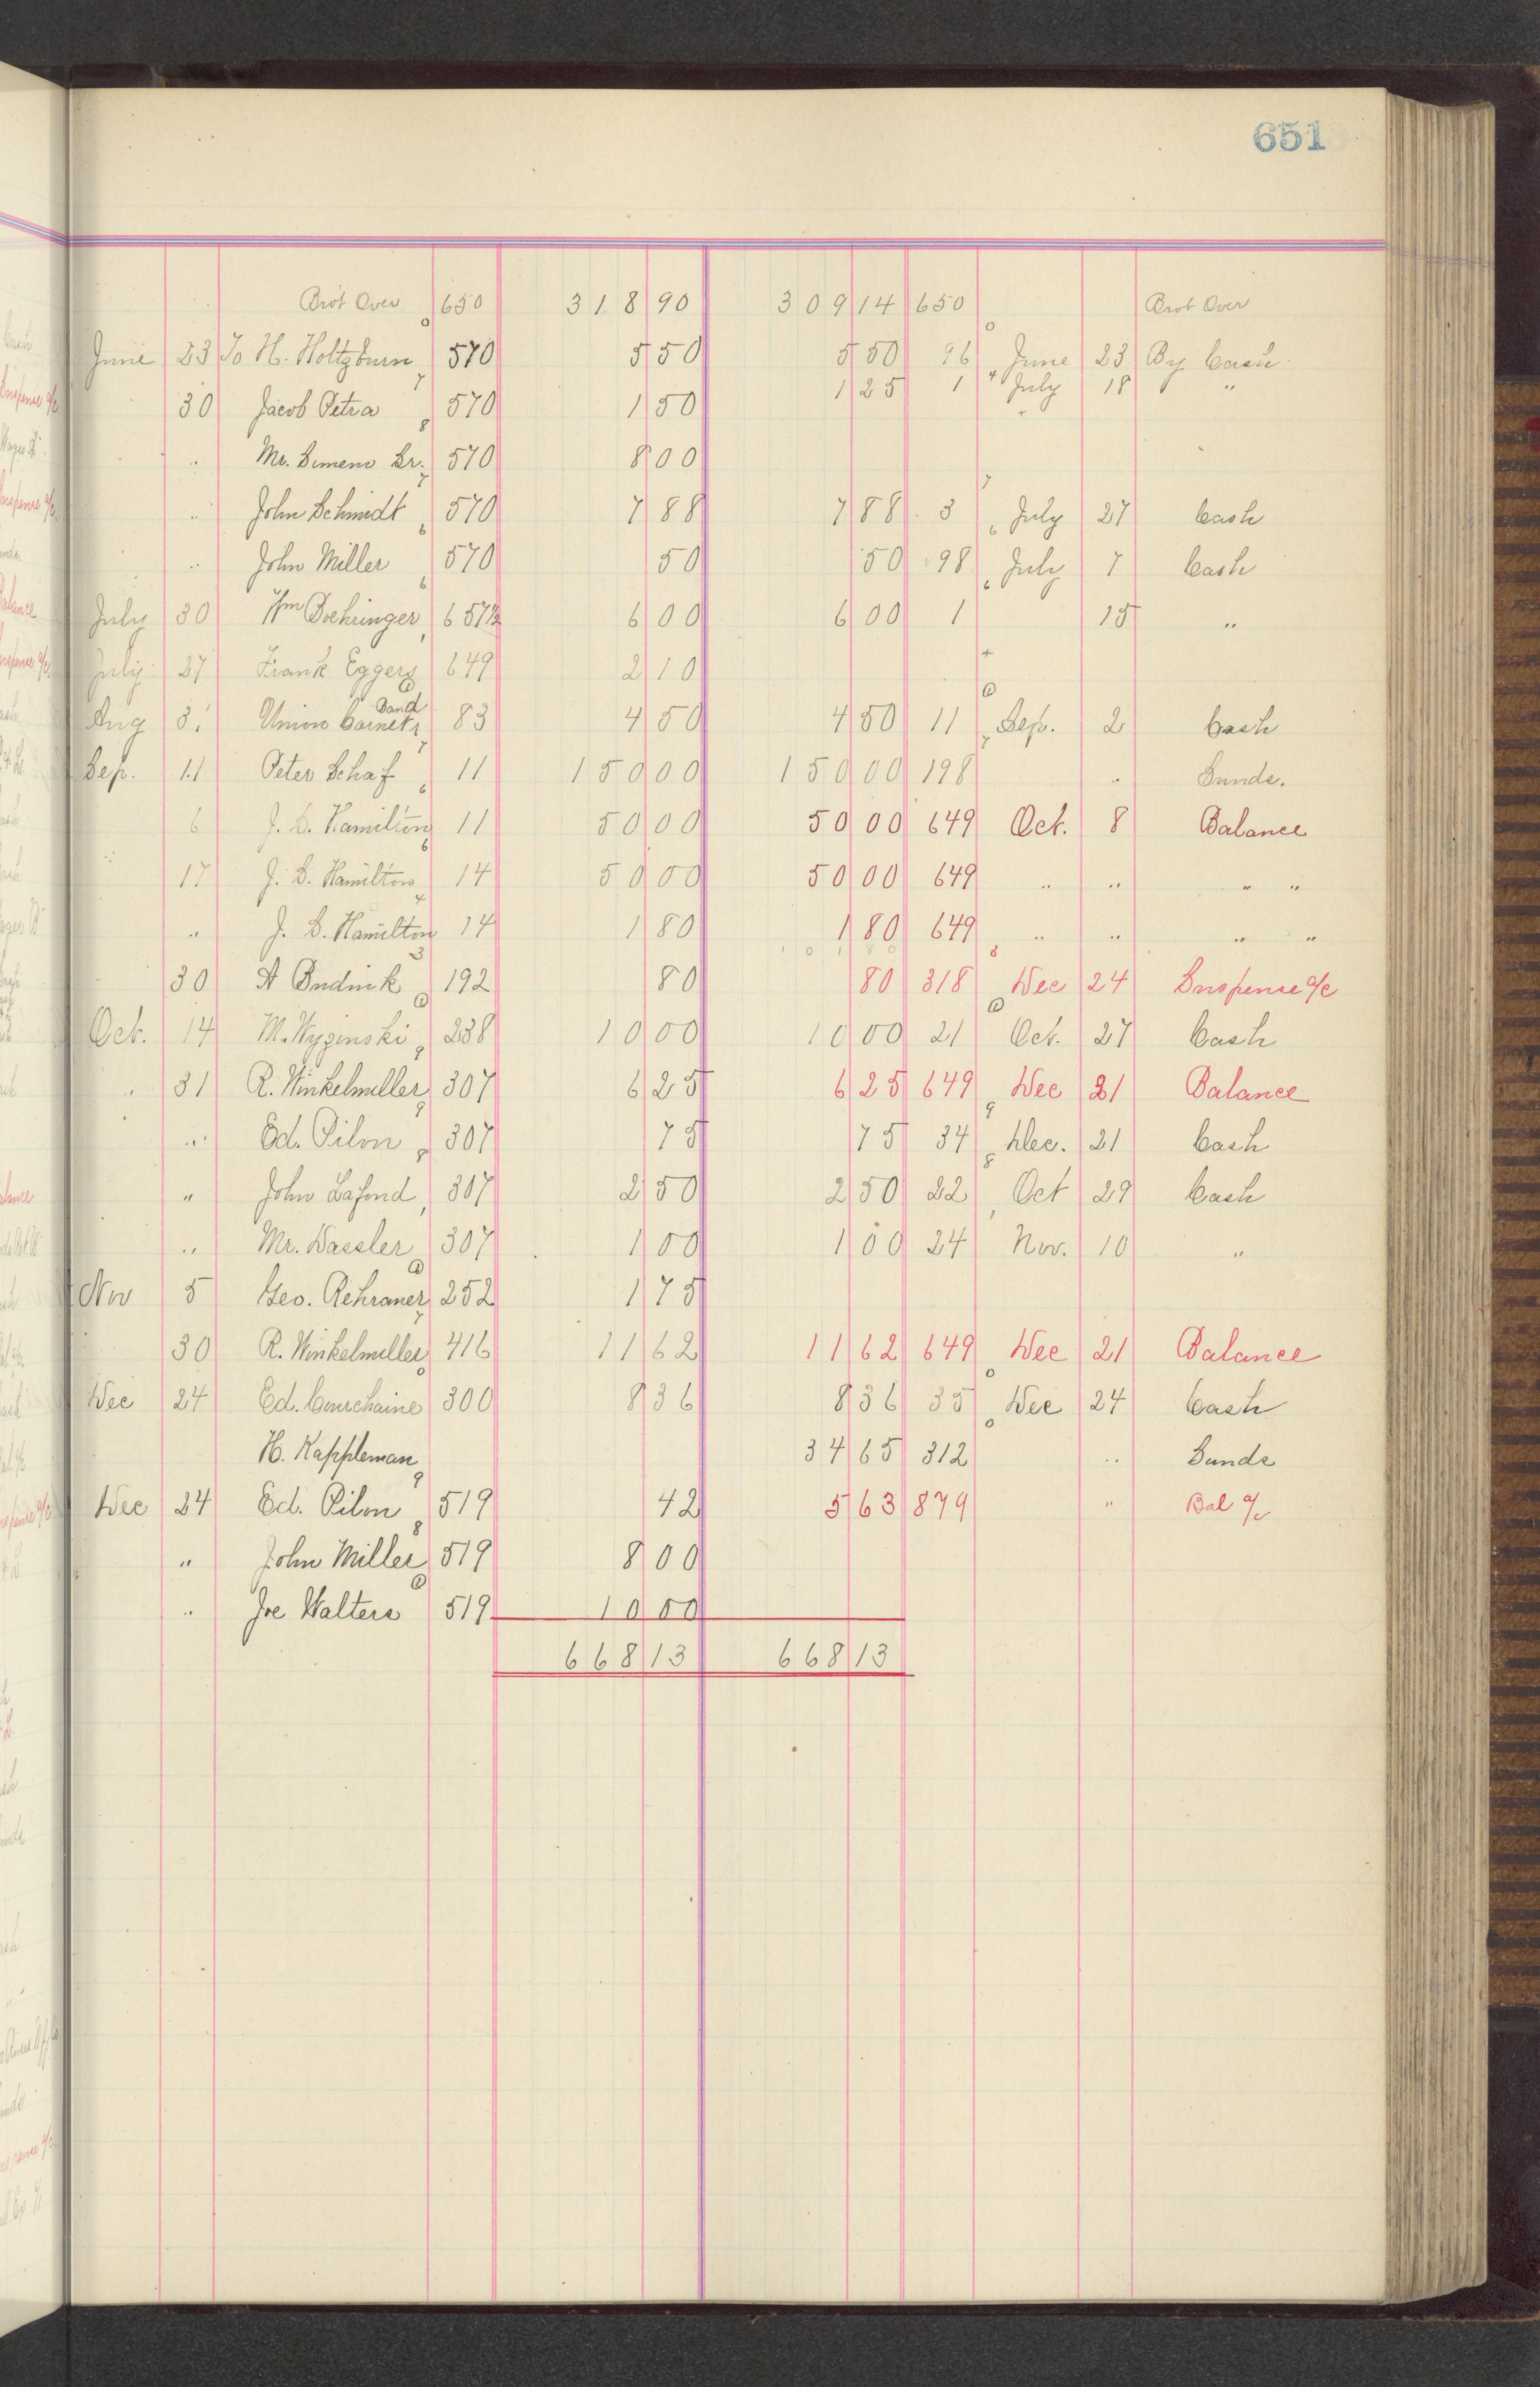 651
Brot Over 650 318 90 309 14 650 Brot Over
June 23 To H. Holtzburn 570 5 50 5 50 96 June 23 By Cash
1 25 1 July 18 "
30 Jacob Petra 570 1 50
" Mr. Simeno Sr. 570 8 00
" John Schmidt 570 7 88 7 88 3 July 27 Cash
" John Miller 570 50 50 98 July 7 Cash
July 30 Wm Boehringer 657½ 6 00 6 00 1 15 "
July 27 Frank Eggers 649 2 10
Aug 31 Union Cornet Band 83 4 50 4 50 11 Sep. 2 Cash
Sep. 11 Peter Schaf 11 150 00 150 00 198 " Sunds.
6 J. S. Hamilton 11 50 00 50 00 649 Oct. 8 Balance
17 J. S. Hamilton 14 50 00 50 00 649 " " " "
" J. S. Hamilton 14 1 80 1 80 649 " " " "
30 A 192 80 80 318 Dec 24 Suspense a/c
Oct. 14 M. Wyginski 238 10 00 10 00 21 Oct. 27 Cash
" 31 R. Winkelmiller 307 6 25 6 25 649 Dec 21 Balance
" Ed. Pilon 307 75 75 34 Dec. 21 Cash
" John Lafond 307 2 50 2 50 22 Oct 29 Cash
" Mr. Wassler 307 1 00 1 00 24 Nov. 10 "
Nov 5 Geo. Rehraner 252 1 75
30 R. Winkelmiller 416 11 62 11 62 649 Dec 21 Balance
Dec 24 Ed. Courchaine 300 8 36 8 36 35 Dec 24 Cash
H. Kappleman 34 65 312 " Sunds
Dec 24 Ed. Pilon 519 42 5 63 879 " Bal a/c
" John Miller 519 8 00
" Joe Walters 519 10 00
668 13 668 13